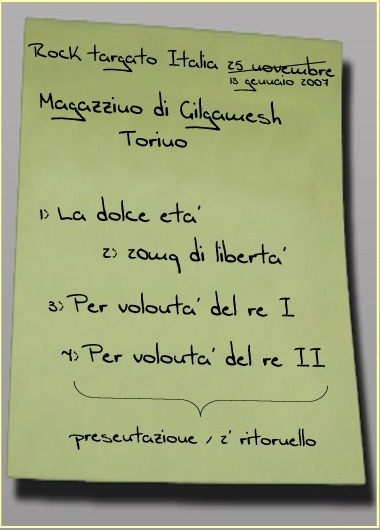 Rock targato Italia 25 novembre
13 gennaio 2007
Magazzino di Gilgamesh
Torino
1) La dolce eta'
2) 20mg di liberta'
3) Per volonta' del re I
4) Per volonta' del re II
presentazione / 2' ritornello